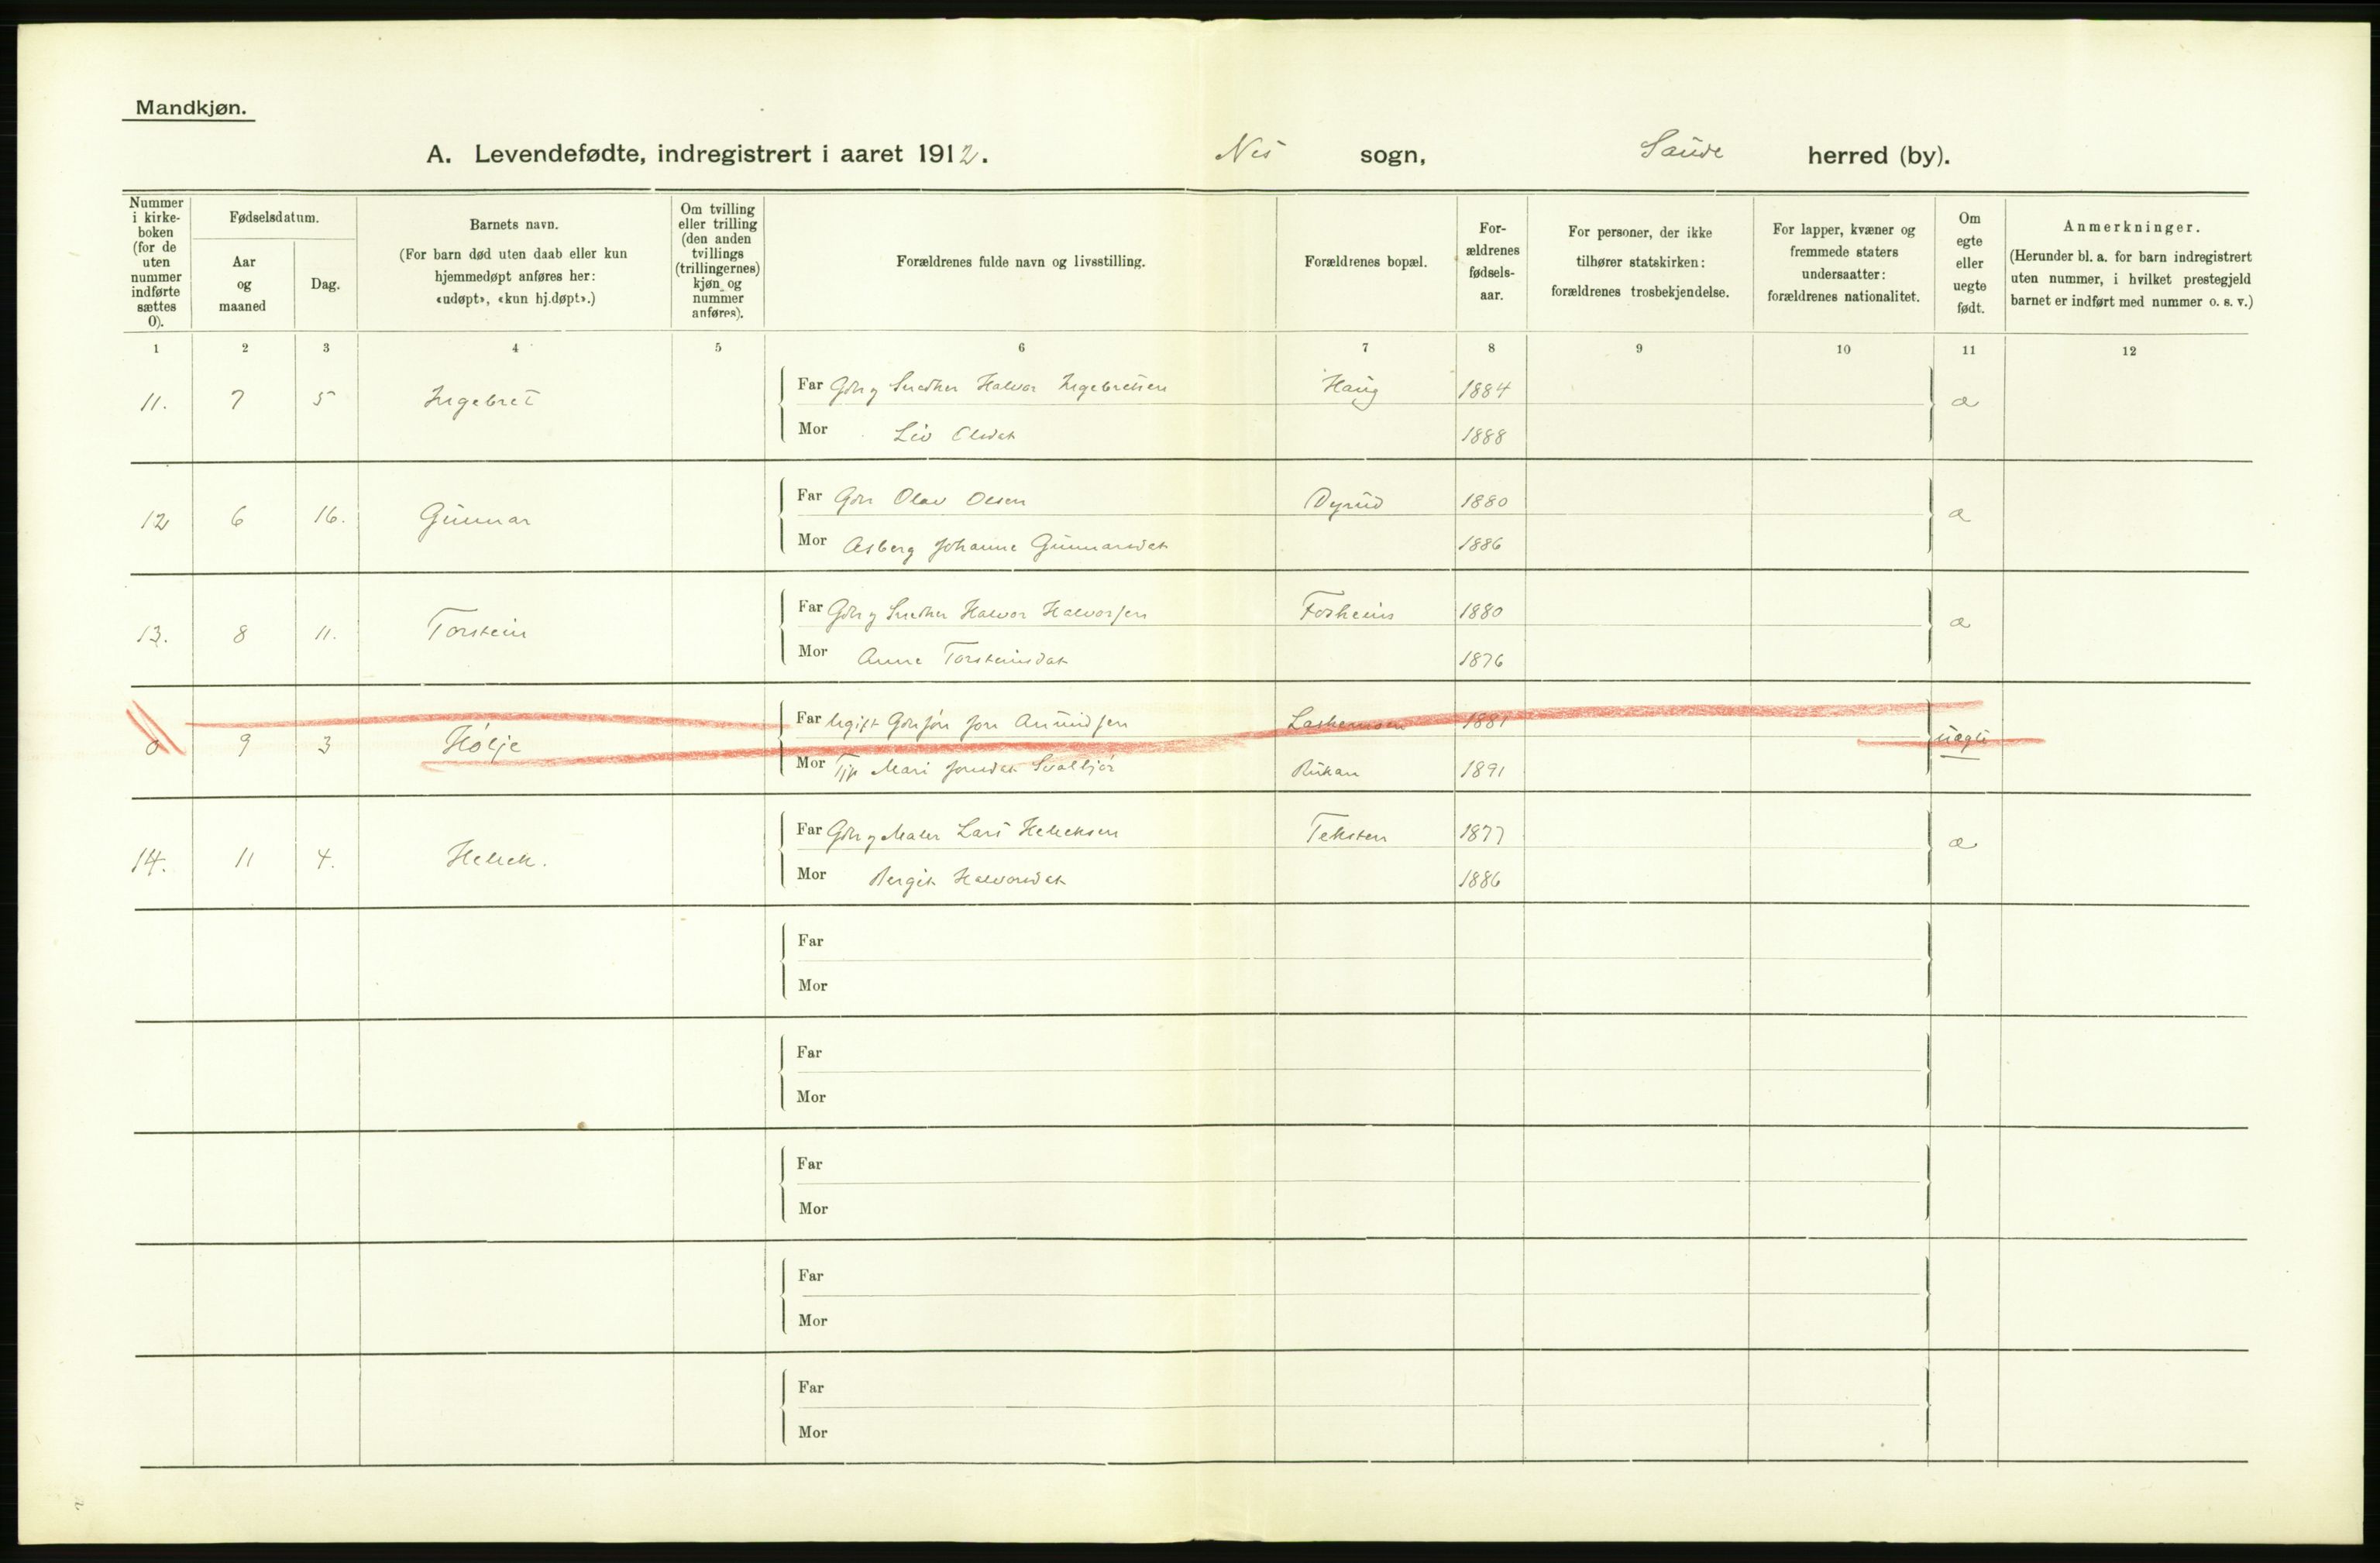 Mandkjøn.
A. Levendefødte, indregistrert i aaret 1912. Nes sogn, Saude herred (by).
Nummer i kirke- boken (for de uten nummer indførte sættes 0).
Fødselsdatum.
Aar og maaned
Dag.
Barnets navn.
(For barn død uten daab eller kun hjemmedøpt anføres her: «udøpt», «kun hj.døpt».)
Om tvilling eller trilling (den anden tvillings (trillingernes) kjøn og nummer anføres).
Forældrenes fulde navn og livsstilling.
Forældrenes bopæl.
For- ældrenes fødsels- aar.
For personer, der ikke tilhører statskirken: forældrenes trosbekjendelse.
For lapper, kvæner og fremmede staters undersaatter: forældrenes nationalitet.
Om egte eller uegte født.
Anmerkninger.
(Herunder bl. a. for barn indregistrert uten nummer, i hvilket prestegjeld barnet er indført med nummer o. s. v.)
1 2 3 4 5 6 7 8 9 10 11 12
11. 7 5 Ingebret Far Gbr og Snedker Halvor Ingebretsen Haug 1884 æ
Mor Liv Olsdat 1888
12 6 16. Gunnar Far Gbr Olav Olsen Dyrud 1880 æ
Mor Asberg Johanne Gunnarsdat 1886
13. 8 11. Torstein Far Gbr og Snedker Halvor Halvorsen Forheim 1880 æ
Mor Anne Torsteinsdat 1876
0 9 3 Hølje Far Ugift Jon Amundsen 1881 uægte
Mor Mari Jonsdat Rukan 1891
14. 11 4. Hellek. Far Gbr og Maler Lars Helleksen Teksten 1877 æ
Mor Bergit Halvorsdat 1886
Far
Mor
Far
Mor
Far
Mor
Far
Mor
Far
Mor